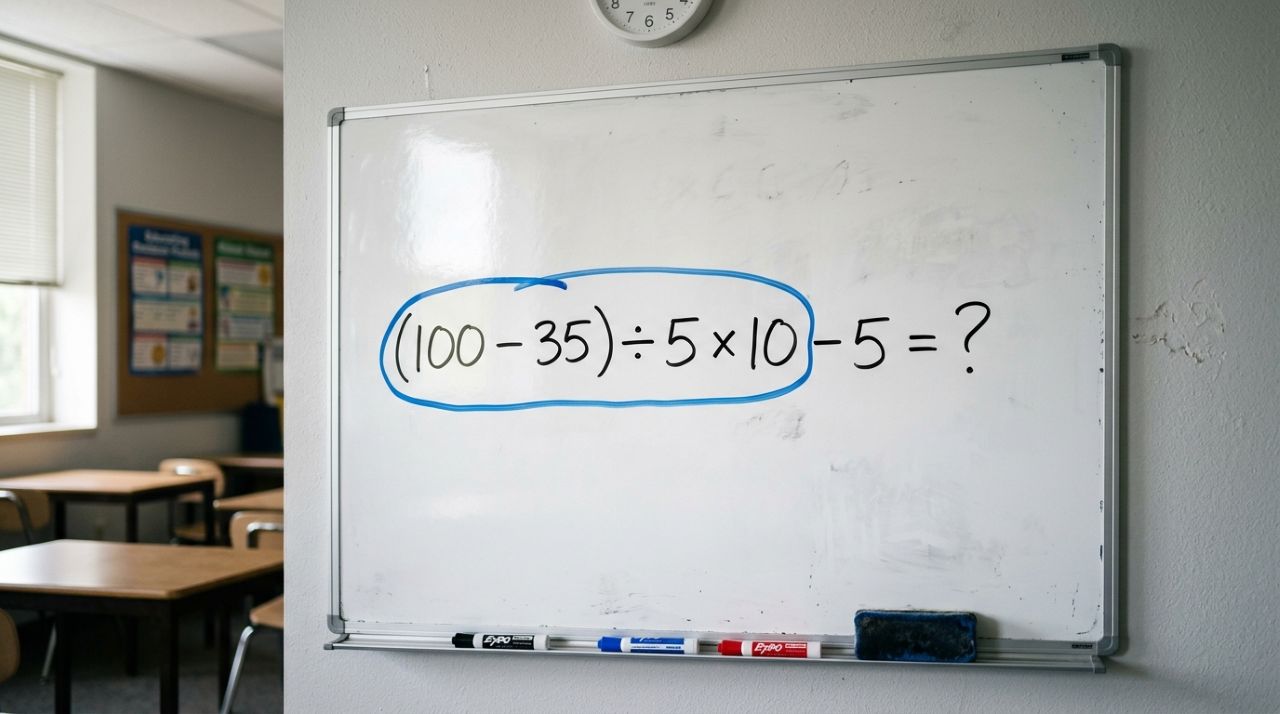 8 7 6 5 4
(100 - 35) ÷ 5 × 10 - 5 = ?
EXPO
EXPO